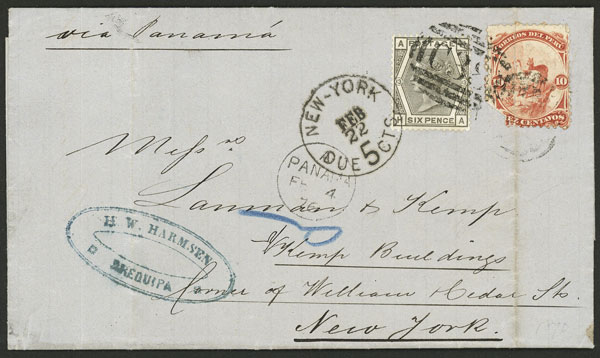 via Panamá
A POSTAGE
SIX PENCE
H A
CORREOS DEL PERU
10 10
CENTAVOS
NEW-YORK
FEB
22
DUE 5 CTS
PANAMA
FE 4
76
Messrs
Lanman & Kemp
Kemp Buildings
Corner of William & Cedar Sts.
New York.
H. W. HARMSEN
AREQUIPA